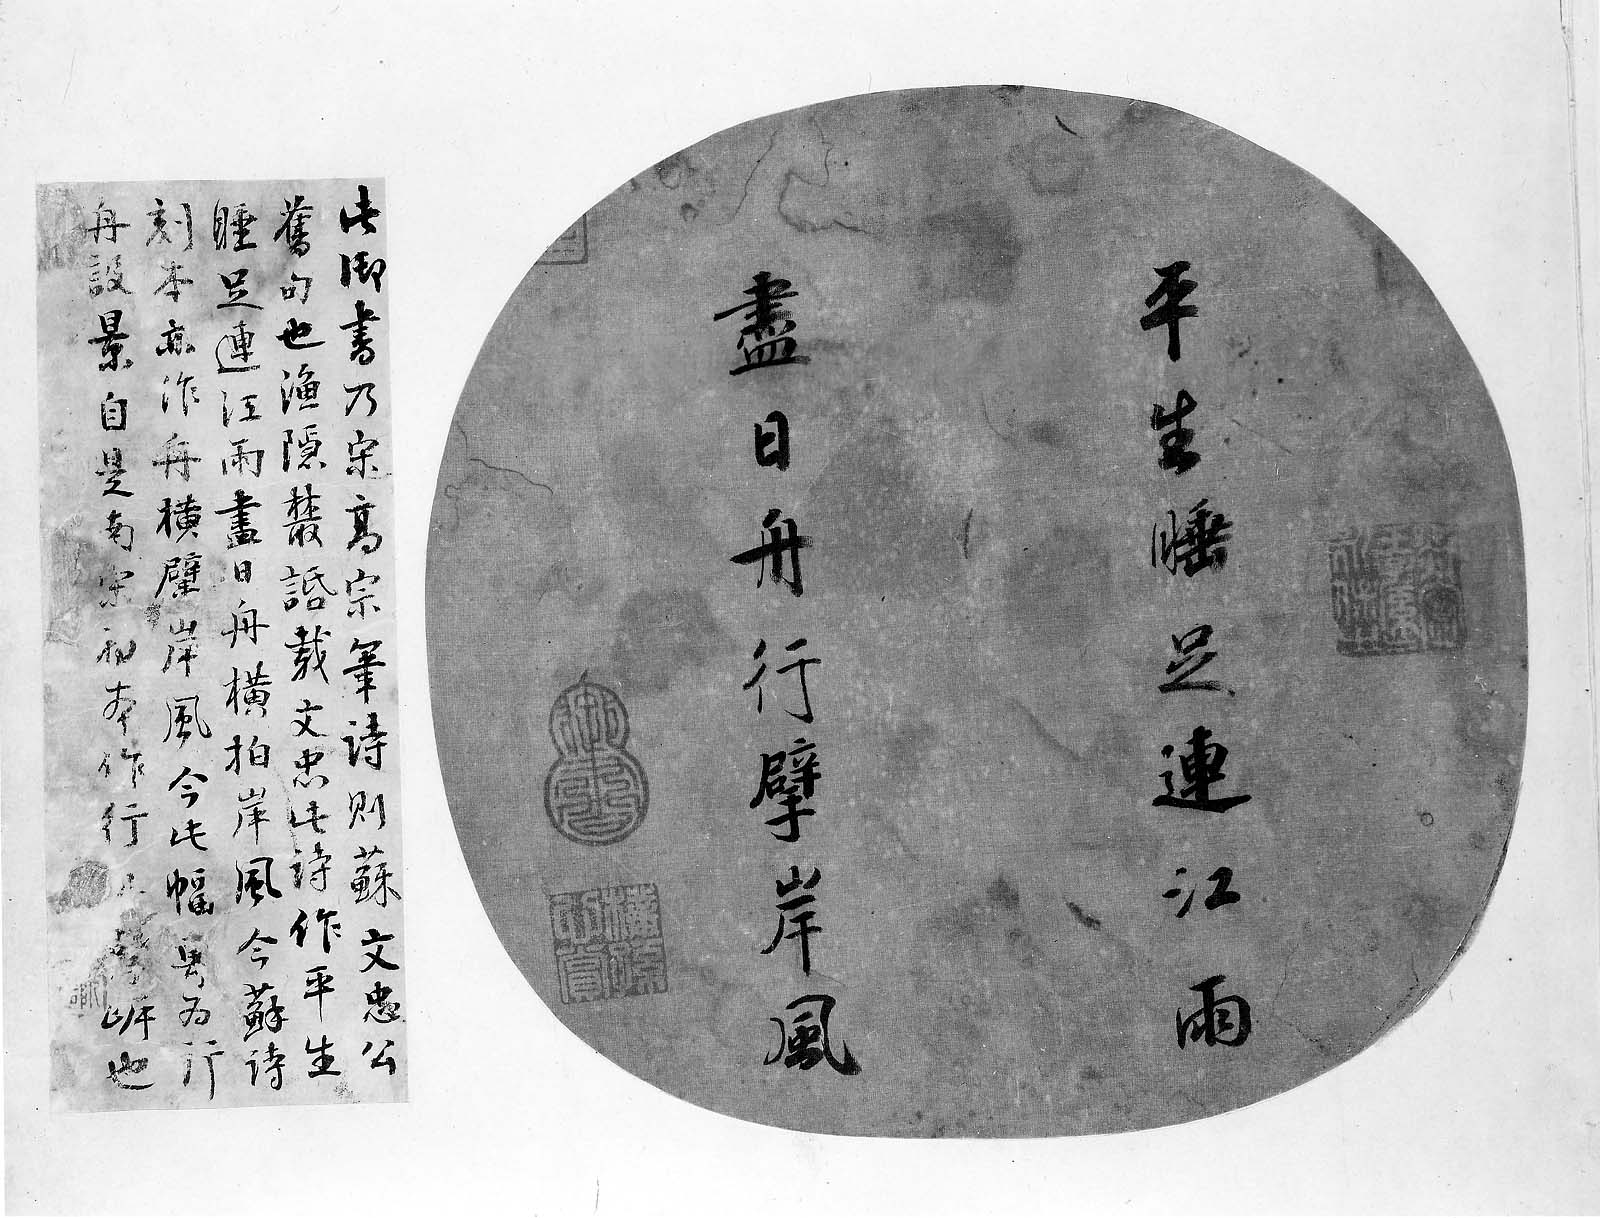 平生睡足連江雨
盡日舟行擘岸風
御書
此御書乃宋高宗筆詩則蘇文忠公
舊句也漁隱叢話載文忠此詩作平生
睡足連江雨盡日舟橫拍岸風今蘇詩
刻本亦作舟橫擘岸風今此幅易為行
舟設景自是南宋初本作行
也